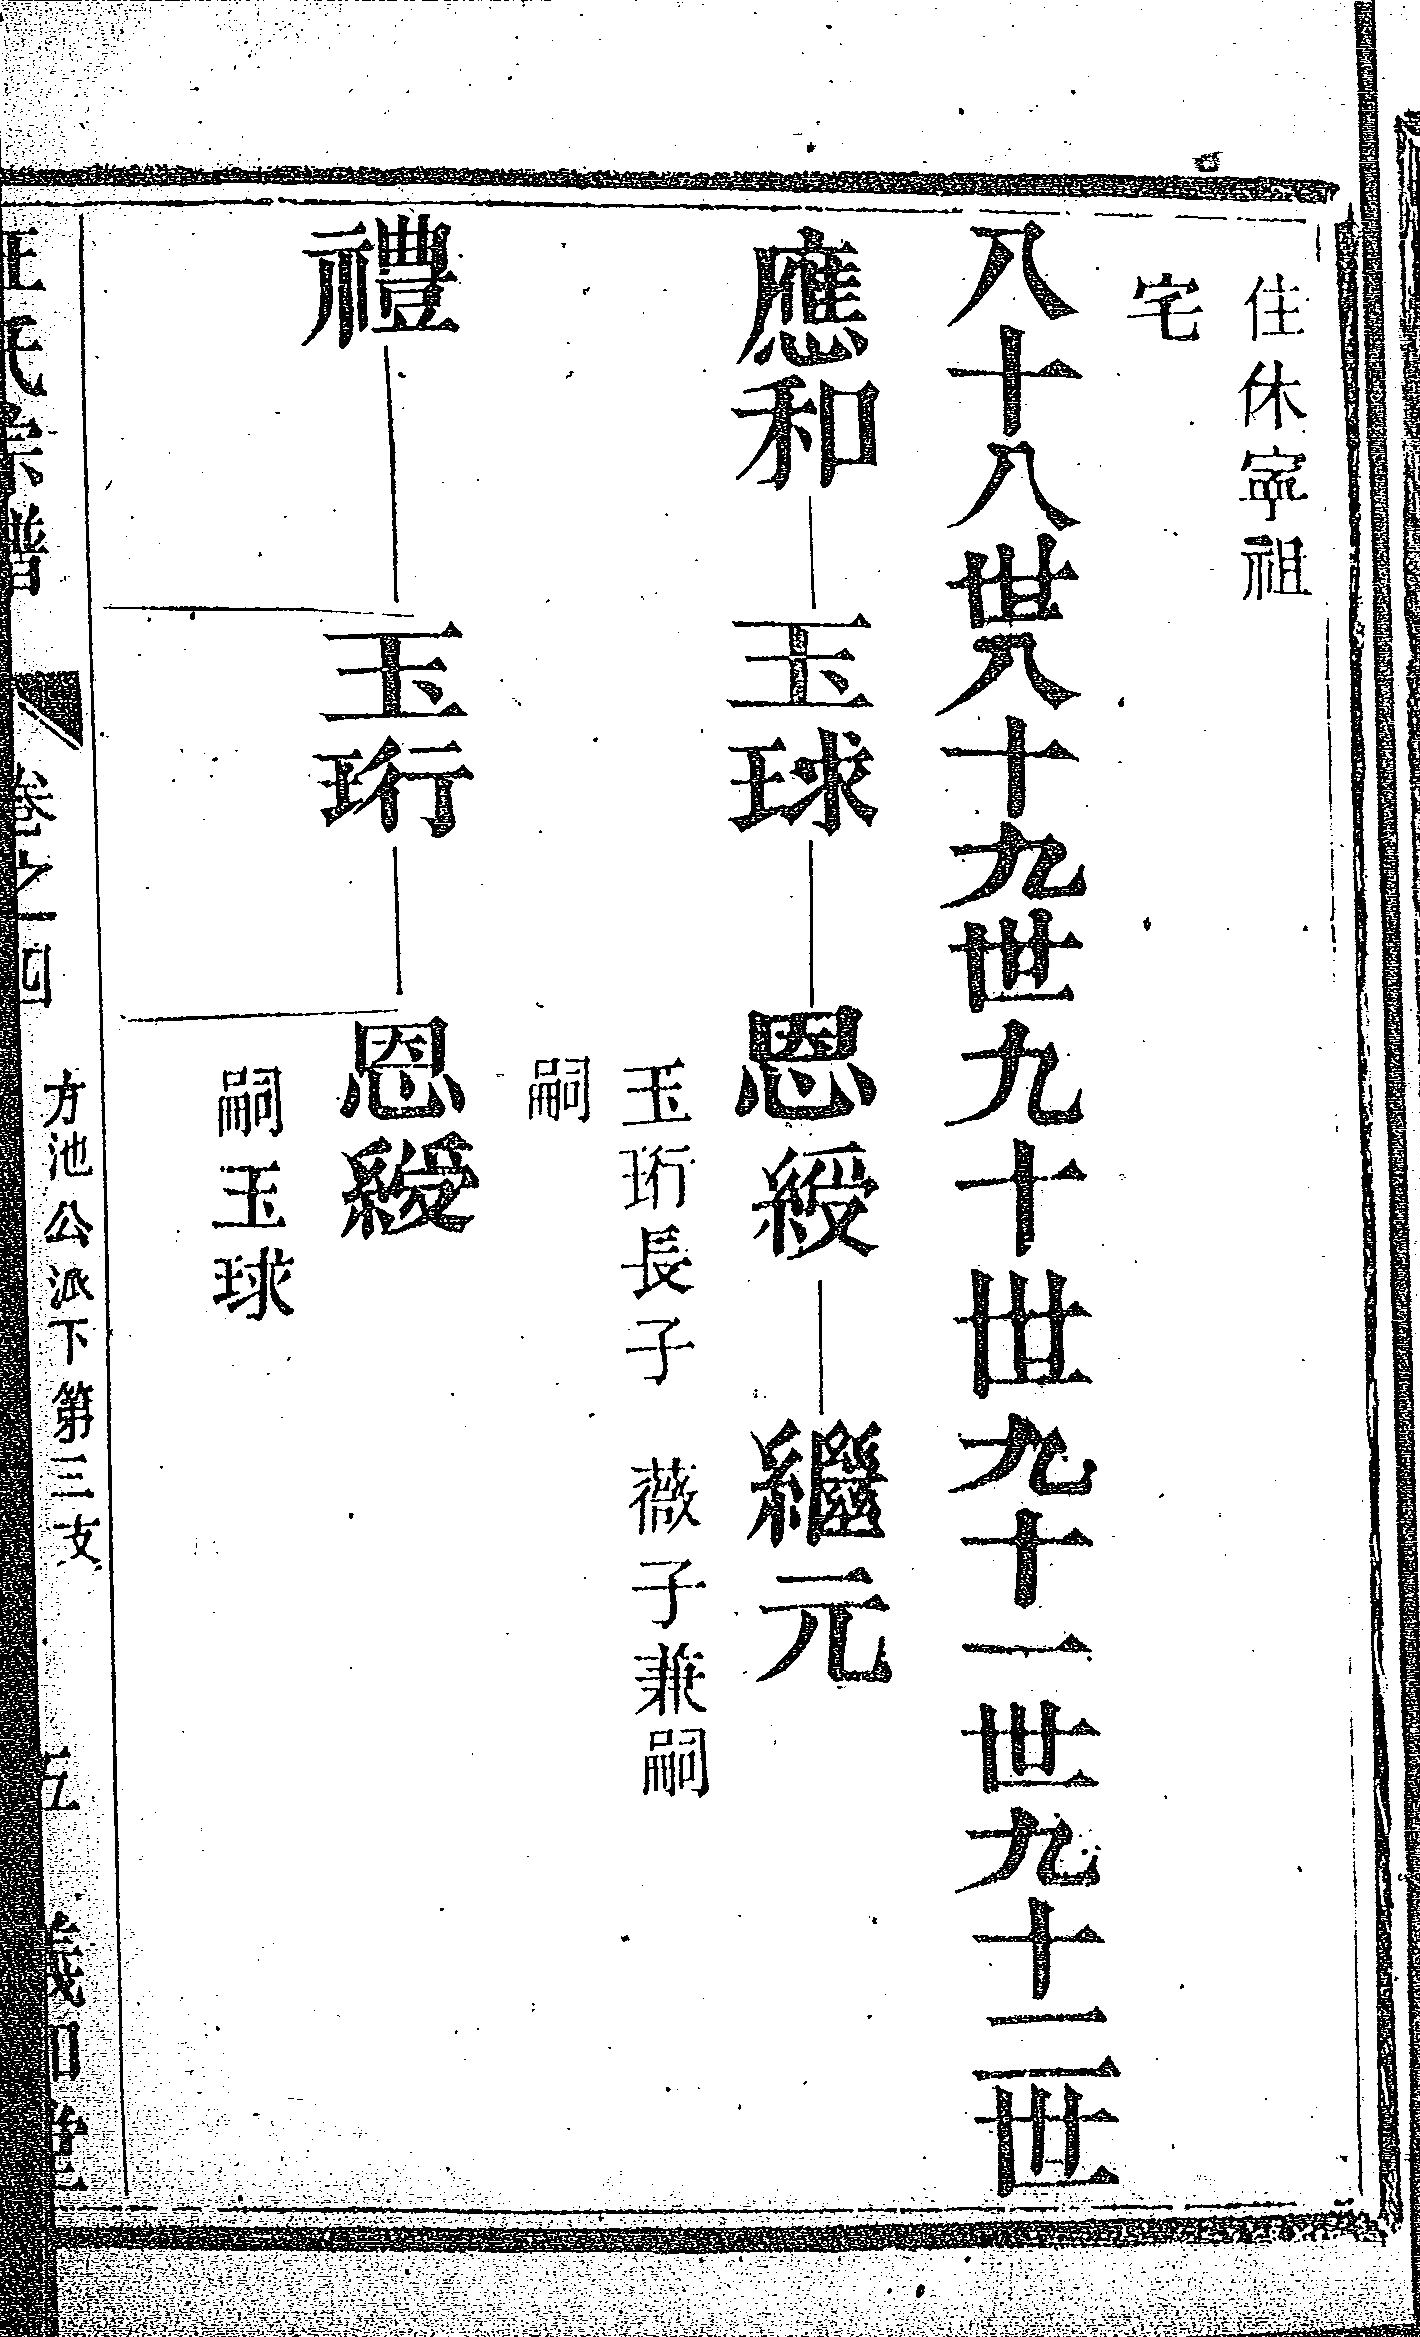 住休寧祖
宅
八十八世八十九世九十世九十一世九十二世
應和 玉球 恩綬 繼元
玉珩長子 薇子兼嗣
嗣
禮 玉珩 恩綬
嗣玉球
氏宗譜 卷之四 方池公派下第三支 五